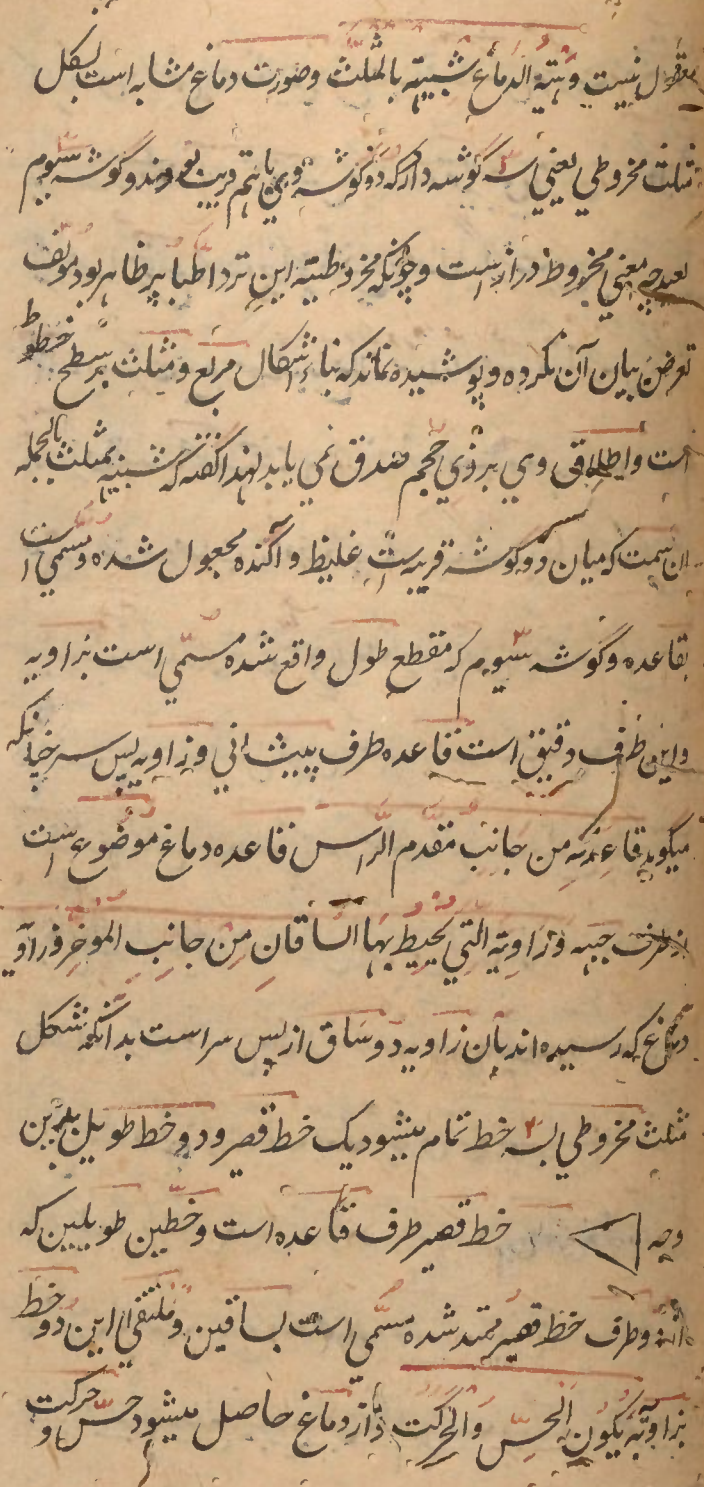 معقول نیست وهیئة الدماغ شبیهة بالمثلث وصورت دماغ مشابه است بشکل
مثلث مخروطی یعنی سه گوشه دارد که دو گوشه وی باهم قریب بوند و گوشه سیوم
بعید چه معنی مخروط دراز است و چونکه مخروطیة این نزد اطبا پر ظاهر بود مولف
تعرض بیان آن نکرده و پوشیده نماند که بناء اشکال مربع و مثلث بر سطح خطوط
است و اطلاق وی بر ذی حجم صدق نمی یابد لهذا گفته که شبیه بمثلث بالجمله
آن سمت که میان دو گوشه قریبه است غلیظ و آگنده مجعول شده و مسمی است
بقاعده و گوشه سیوم که مقطع طول واقع شده مسمی است بزاویه
و این طرف دقیق است قاعده طرف پیشانی و زاویه پس سر چنانکه
میگوید قاعدته من جانب مقدم الراس قاعده دماغ موضوع است
از طرف جبهه وزاویته التی یحیط بها الساقان من جانب الموخر وزاویه
دماغ که رسیده اند بآن زاویه دو ساق از پس سر است بدانکه شکل
مثلث مخروطی بسه خط تمام میشود یک خط قصیر و دو خط طویل بدین
وجه خط قصیر طرف قاعده است و خطین طویلین که
از دو طرف خط قصیر ممتد شده مسمی است بساقین و ملتقی این دو خط
بزاویه به یکون الحس والحرکت و از دماغ حاصل میشود حس و حرکت